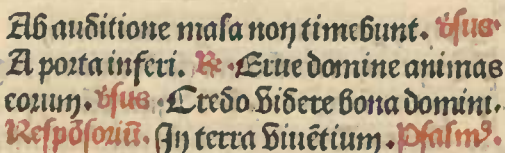 Ab auditione mala non timebunt. v̄sus.
A porta inferi. ℟. Erue domine animas
eorum. v̄sus. Credo videre bona domini.
Respōsoriū. In terra viuētium. Psalmꝰ.